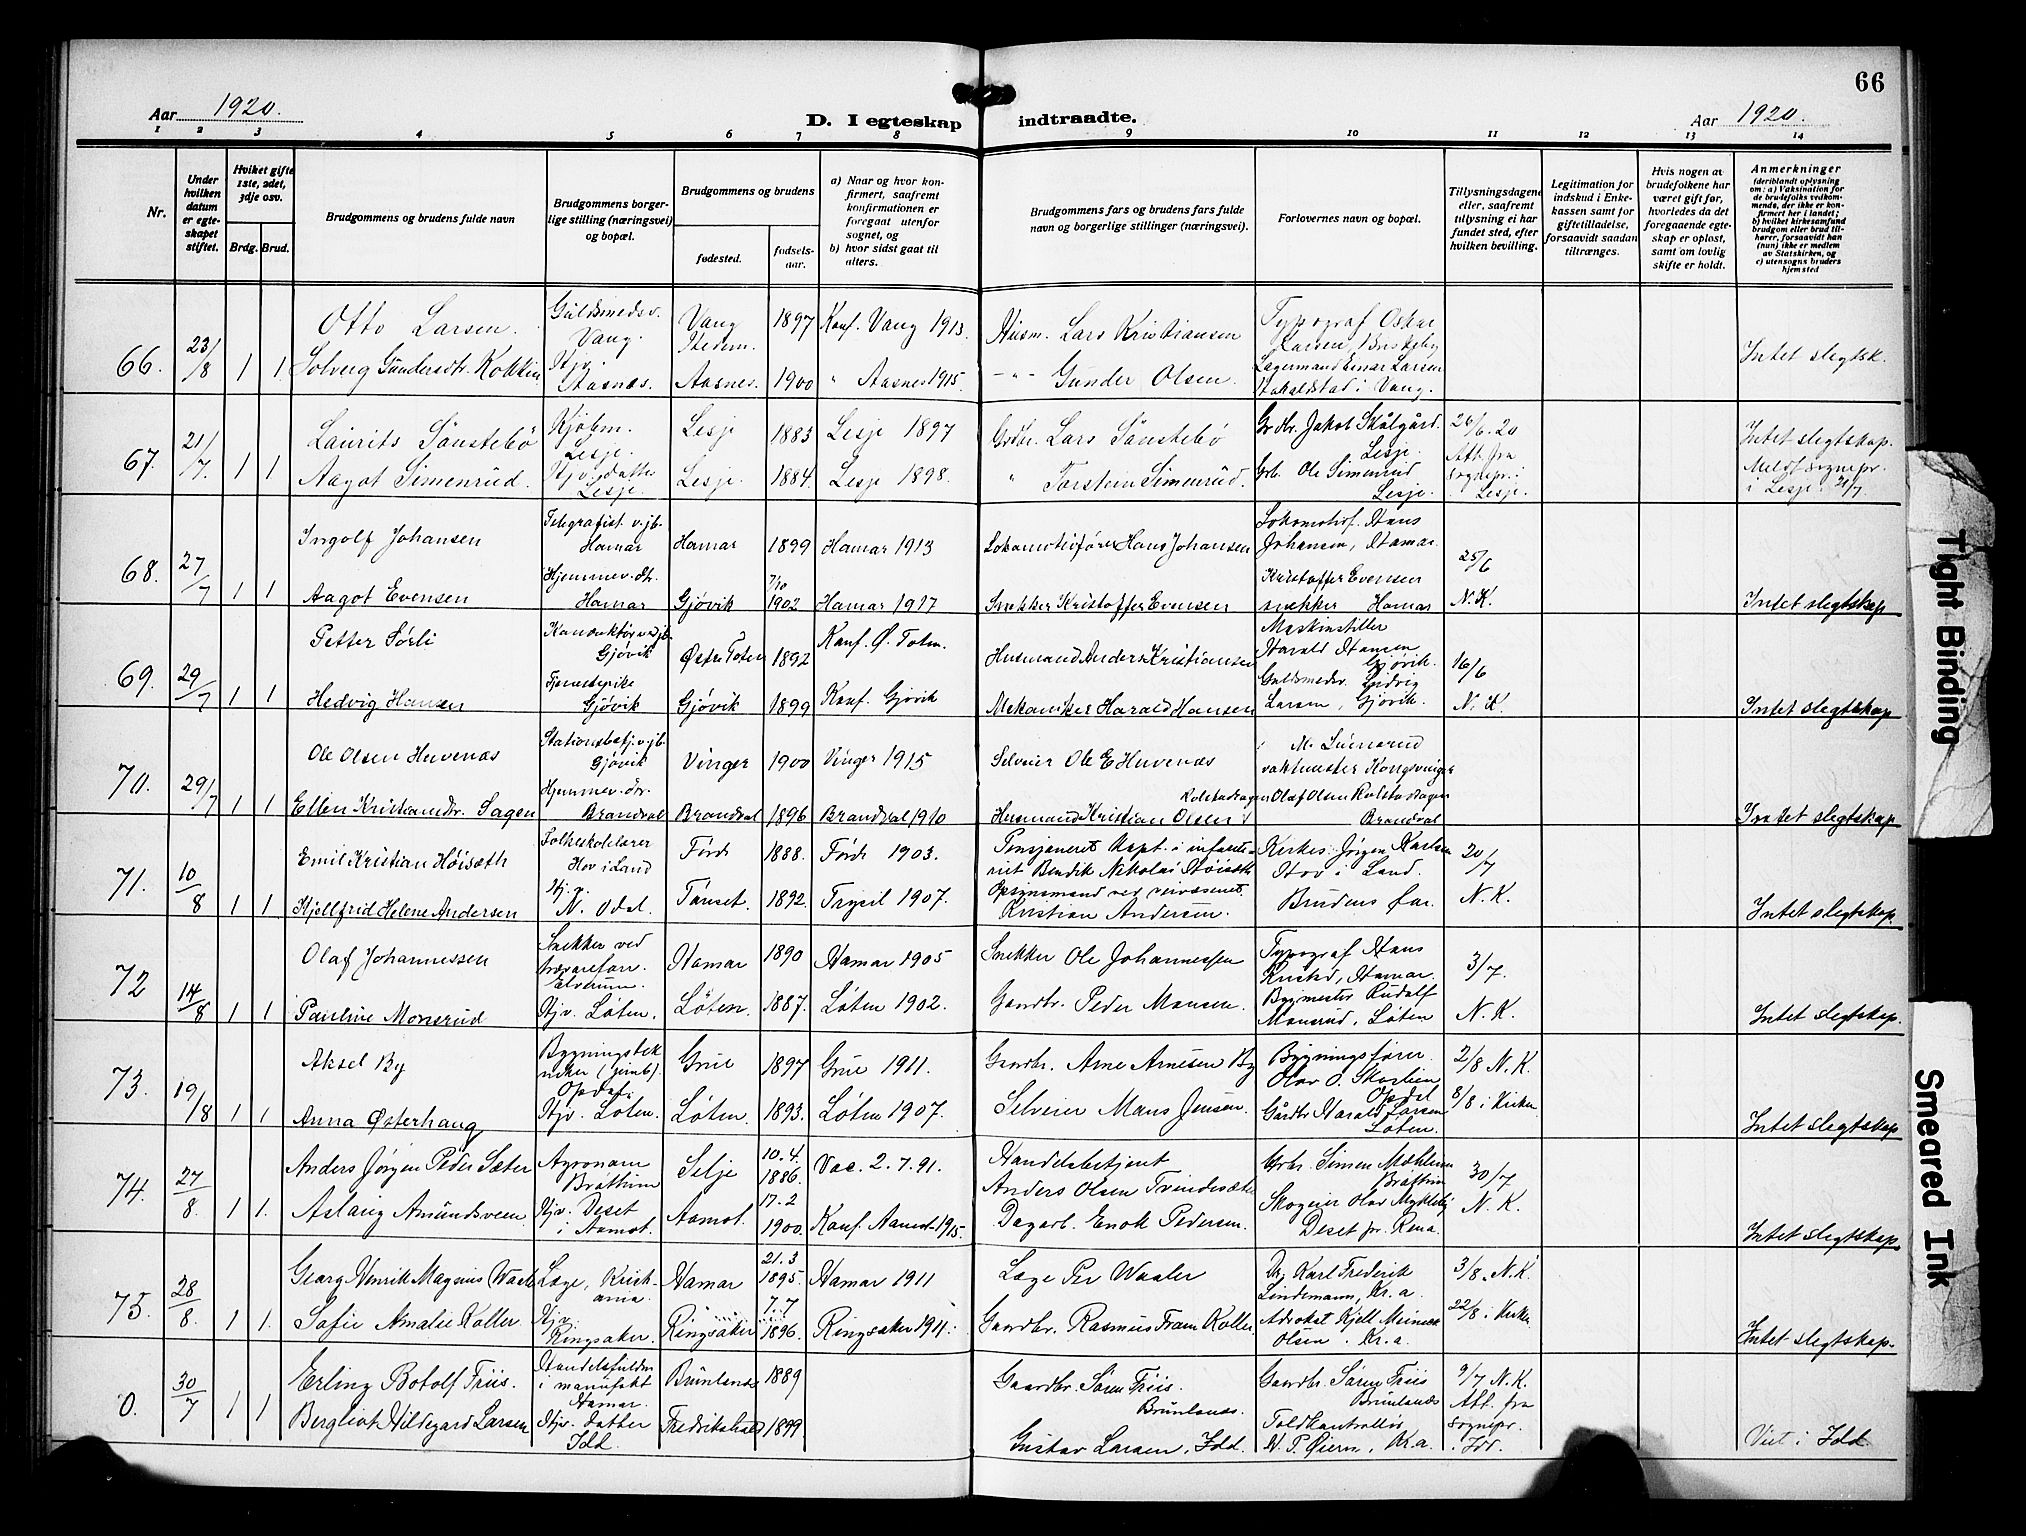 66
Aar 1920.
D. I egteskap indtraadte.
Aar 1920.
1 2 3 4 5 6 7 8 9 10 11 12 13 14
Nr.
Under hvilken datum er egteskapet stiftet.
Hvilket gifte 1ste, 2det, 3dje osv.
Brdg. Brud.
Brudgommens og brudens fulde navn
Brudgommens borgerlige stilling (næringsvei) og bopæl.
Brudgommens og brudens
fødested.
fødselsaar.
a) Naar og hvor konfirmert, saafremt konfirmationen er foregaat utenfor sognet, og
b) hvor sidst gaat til alters.
Brudgommens fars og brudens fars fulde navn og borgerlige stillinger (næringsvei).
Forlovernes navn og bopæl.
Tillysningsdagene eller, saafremt tillysning ei har fundet sted, efter hvilken bevilling.
Legitimation for indskud i Enkekassen samt for giftetilladelse, forsaavidt saadan tiltrænges.
Hvis nogen av brudefolkene har været gift før, hvorledes da det foregaaende egteskap er opløst, samt om lovlig skifte er holdt.
Anmerkninger
(deriblandt oplysning om: a) Vaksination for de brudefolks vedkommende, der ikke er konfirmert her i landet; b) hvilket kirkesamfund brudgom eller brud tilhører, forsaavidt han (hun) ikke er medlem av Statskirken, og c) utensogns bruders hjemsted
66. 23/8 1 1.
Otto Larsen. Guldsmedsv. Vang. Vang Hedem. 1897 Konf. Vang 1913. Husm. Lars Kristiansen Typograf Oskar Larsen,
Solveig Gundersdt. Kokkin Hjv. Aasnæs. Aasnes. 1900 " Aasnes 1915. -"- Gunder Olsen. Lagermand Einar Larsen i Vang.
Intet slegtsk.
67. 21/7 1 1
Laurits Sönstebö Kjøbm. Lesje. Lesje 1883 Lesje 1897 Grdbr. Lars Sönstebö Grdbr. Jakob Skålgård. Lesje. 26/6. 20
Aagot Simenrud. Hjv. datter Lesje. Lesje. 1884. Lesje 1898. " Torstein Simenrud. Grb. Ole Simenrud Lesje. Att. fra sognepr. i Lesje.
Intet slegtskap. Meldt sognepr. i Lesje. 21/7
68. 27/7 1 1
Ingolf Johansen Telegrafist v. jb. Hamar Hamar 1899 Hamar 1913 Lokomotivfører Hans Johansen Lokomotivf. Hans Johansen, Hamar. 25/6
Aagot Evensen Hjemmev. dtr. Hamar Gjøvik 7/10 1902 Hamar 1917 Snekker Kristoffer Evensen Kristoffer Evensen snekker Hamar N. K.
Intet slegtskap
69. 29/7 1 1
Petter Sørli Konduktør v. jb. Gjøvik Østre Toten 1892 Konf. Ø. Toten. Husmand Anders Kristiansen Maskinstiller Harald Hansen Gjøvik. 16/6
Hedvig Hansen Tjenestepike Gjøvik Gjøvik 1899 Konf. Gjøvik Mekaniker Harald Hansen Guldsmedsv. Ludvig Larsen, Gjøvik. N. K.
Intet slegtskap
70. 29/7 1 1
Ole Olsen Huvenæs Stationsbetj. v. jb. Gjøvik Vinger 1900 Vinger 1915 Selveier Ole E Huvenæs vaktmester Kongsvinger
Ellen Kristiansdtr. Sagen Hjemmev. dtr. Brandval Brandval 1896 Brandval 1910 Husmand Kristian Olsen Olaf Olsen Brandval
Intet slegtskap
71. 10/8 1 1
Emil Kristian Höisæth Folkeskolelærer Hov i Land Förde 1888. Förde 1903. Pensioneret Kapt. i infanteriet Bendik Nikolai Höisæth Kirkes. Jörgen Karlsen Hov i Land. 20/7
Kjellfrid Helene Andersen Hjv. N. Odal. Tönset. 1892. Trysil 1907. Opsynsmand ved veivæsenet. Kristian Andersen. Brudens far. N. K.
Intet slegtskap.
72 14/8 1 1
Olaf Johannessen Snekker ved Elverum. Hamar 1890 Hamar 1905 Snekker Ole Johannessen Typograf Hans Hamar. 3/7.
Pauline Monsrud Hjv. Löten. Löten. 1887. Löten 1902. Gaardbr. Peder Monsen. Bygmester Rudolf Monsrud, Löten N. K.
Intet slegtskap.
73. 19/8 1 1
Aksel By Bygningstekniker (jernb). Opdal. Grue 1897 Grue 1911. Gaardbr. Arne Arnesen By Bygningsfører. Olav O. Opdal 2/8 N. K.
Anna Østerhaug Hjv. Löten. Löten 1893. Löten 1907. Selveier Mans Jensen. Gårdbr. Harald Larsen Löten. 8/8 i Kirken
Intet slegtskap
74. 27/8. 1 1.
Anders Jörgen Peder Sæter Agronom Bröttum Selje 10. 4. 1886. Vac. 2. 7. 91. Handelsbetjent Anders Olsen Grbr. Simen Mæhlum Bröttum 30/7
Aslaug Amundsveen Hjv. Deset i Aamot. Aamot. 17. 2 1900. Konf. Aamot 1915. Dagarb. Enok Pedersen. Skogeier Olav Myklebÿ Deset pr. Rena. N. K.
Intet slegtskap.
75. 28/8. 1 1.
Georg Henrik Magnus Waaler Læge, Kristiania. Hamar 21. 3 1895. Hamar 1911 Læge Per Waaler Karl Frederik Lindemann, Kr.a. 3/8. N. K.
Sofie Amalie Koller Hjv. Ringsaker. Ringsaker 7. 7 1896. Ringsaker 1911. Gaardbr. Rasmus Fram Koller Advokat Kjell Meinich Olsen. Kr. a. 22/8 i Kirken
Intet slegtskap.
0. 30/7 1 1
Erling Botolf Friis. i manufakt Hamar. Brunlanes 1889 Gaardbr. Sören Friis. Brunlanes. Gaardbr. Sören Friis Brunlanes 9/7 N. K.
Bergliot Hildegard Larsen Hjv. datter Idd. Fredrikshald 1899 Gustav Larsen, Idd. Toldkontrollör N. P. Öiern, Kr. a. Att. fra sognepr. i Idd.
Viet i Idd
Tight Binding
Smeared Ink